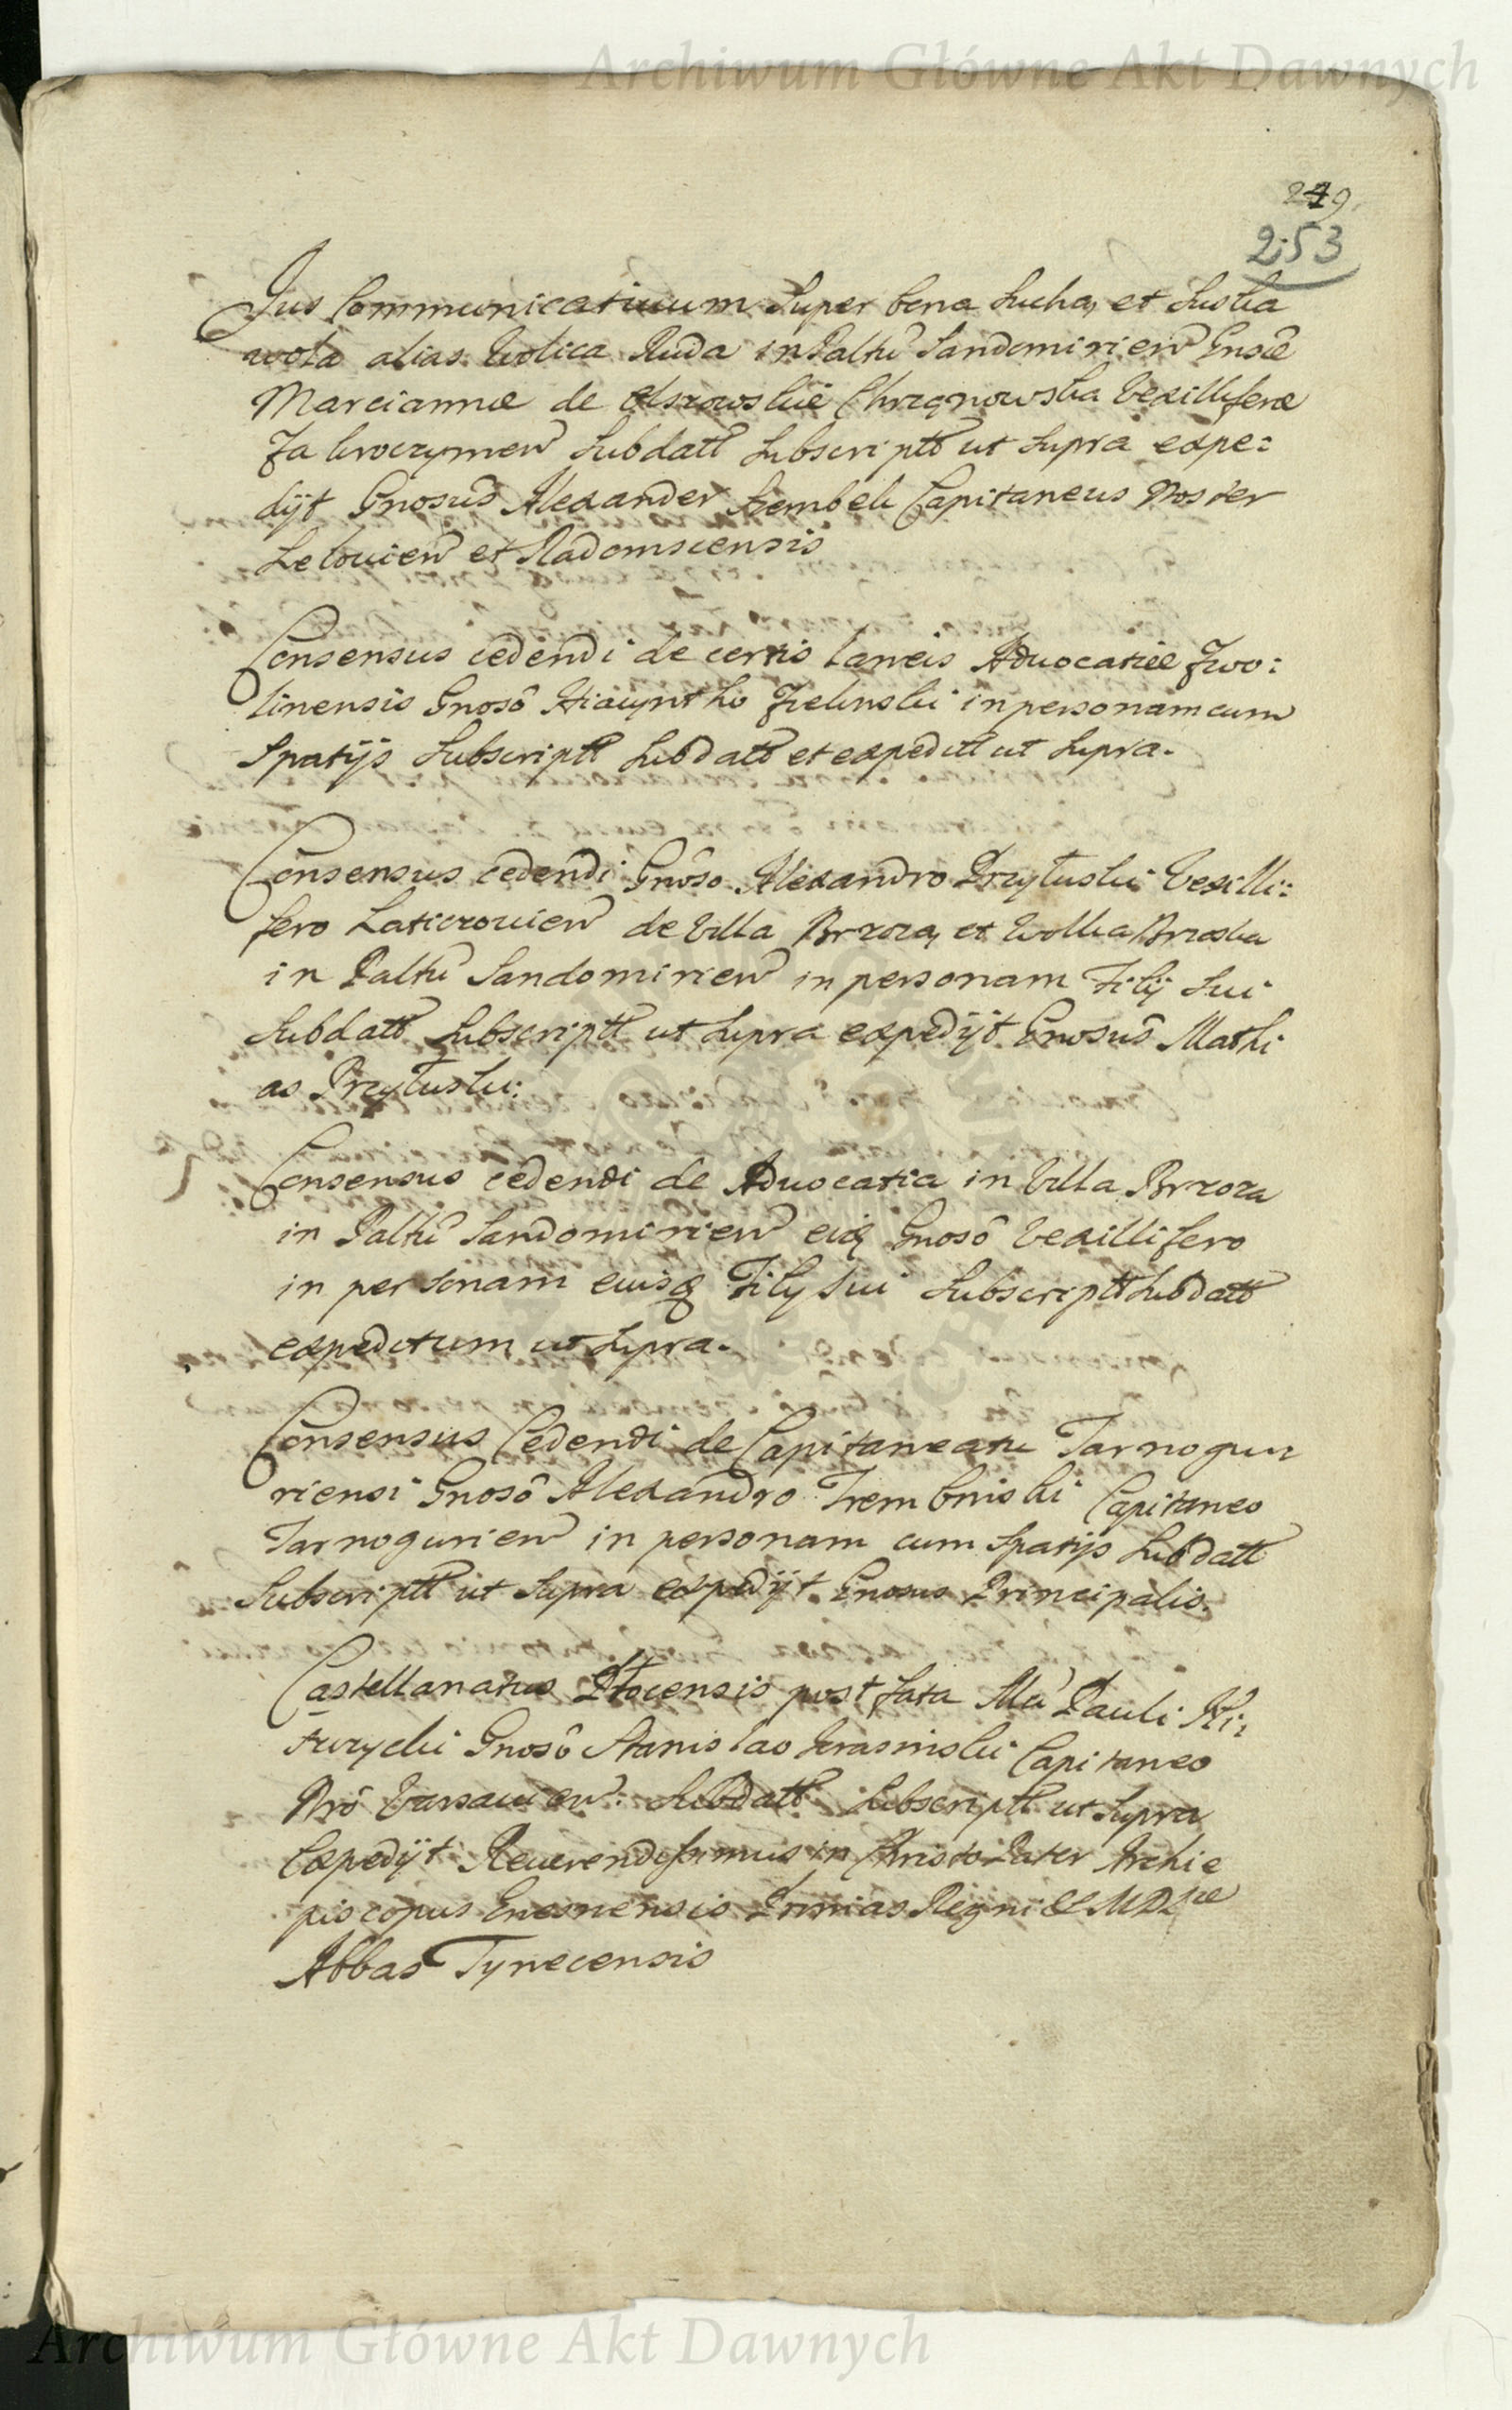 Archiwum Główne Akt Dawnych
249.
253
Jus Communicatiuum Super bona Sucha, et Suska
wola alias Wolica Ruda in Paltu Sandomirien Gnsae
Mariannae de Chrząnowska Vexilliferae
Zakroczymen Subdatt Subscriptt ut Supra expe:
dijt Gnosus Alexander Szembek Capitaneus Noster
Lelouien et Radomscensis
Consensus cedendi de certis laneis Aduocatiae Zwo:
linensis Gnoso Hiacyntho Zielinski in personam cum
Spatijs Subscriptt Subdatt et expeditt ut Supra.
Consensus cedendi Gnoso Alexandro Przyłuski Vexilli:
fero Laticzouien de Villa Brzoza, et Wolka Brzoska
in Paltu Sandomirien in personam Filij Sui
Subdatt Subscriptt ut Supra expedijt Gnosus Mathi
as Przyłuski:
Consensus cedendi de Aduocatia in Villa Brzoza
in Paltu Sandomirien eidq Gnoso Vexillifero
in personam euisq Filij Sui Subscriptt Subdatt
expeditum ut Supra.
Consensus Cedendi de Capitaneatu Tarnogur
riensi Gnoso Alexandro Trembinski Capitaneo
Tarnogurien in personam cum Spatijs Subdatt
Subscriptt ut Supra expedijt Gnosus Principalis.
Castellanatus Płocensis post fata Mci Pauli
Gnoso Stanislao Krasinski Capitaneo
Nro Varsauien. Subdatt Subscriptt ut Supra
Expedijt Reuerendissimus in Christo Pater Archie
piscopus Gnesnensis Primas Regni & MDLae
Abbas Tynecensis
Archiwum Główne Akt Dawnych